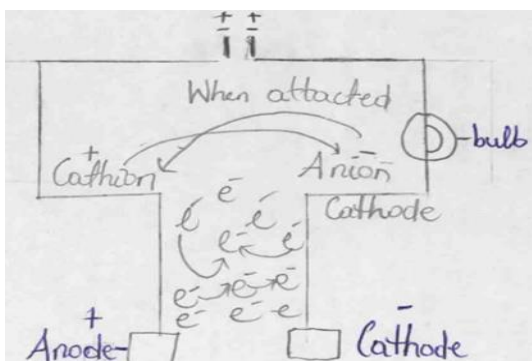 + +
- -
When attacted
+ -
Cathion Anion
Cathode
bulb
e- e- e-
e- e-
e- e- e-
e- e- e
+ -
Anode Cathode